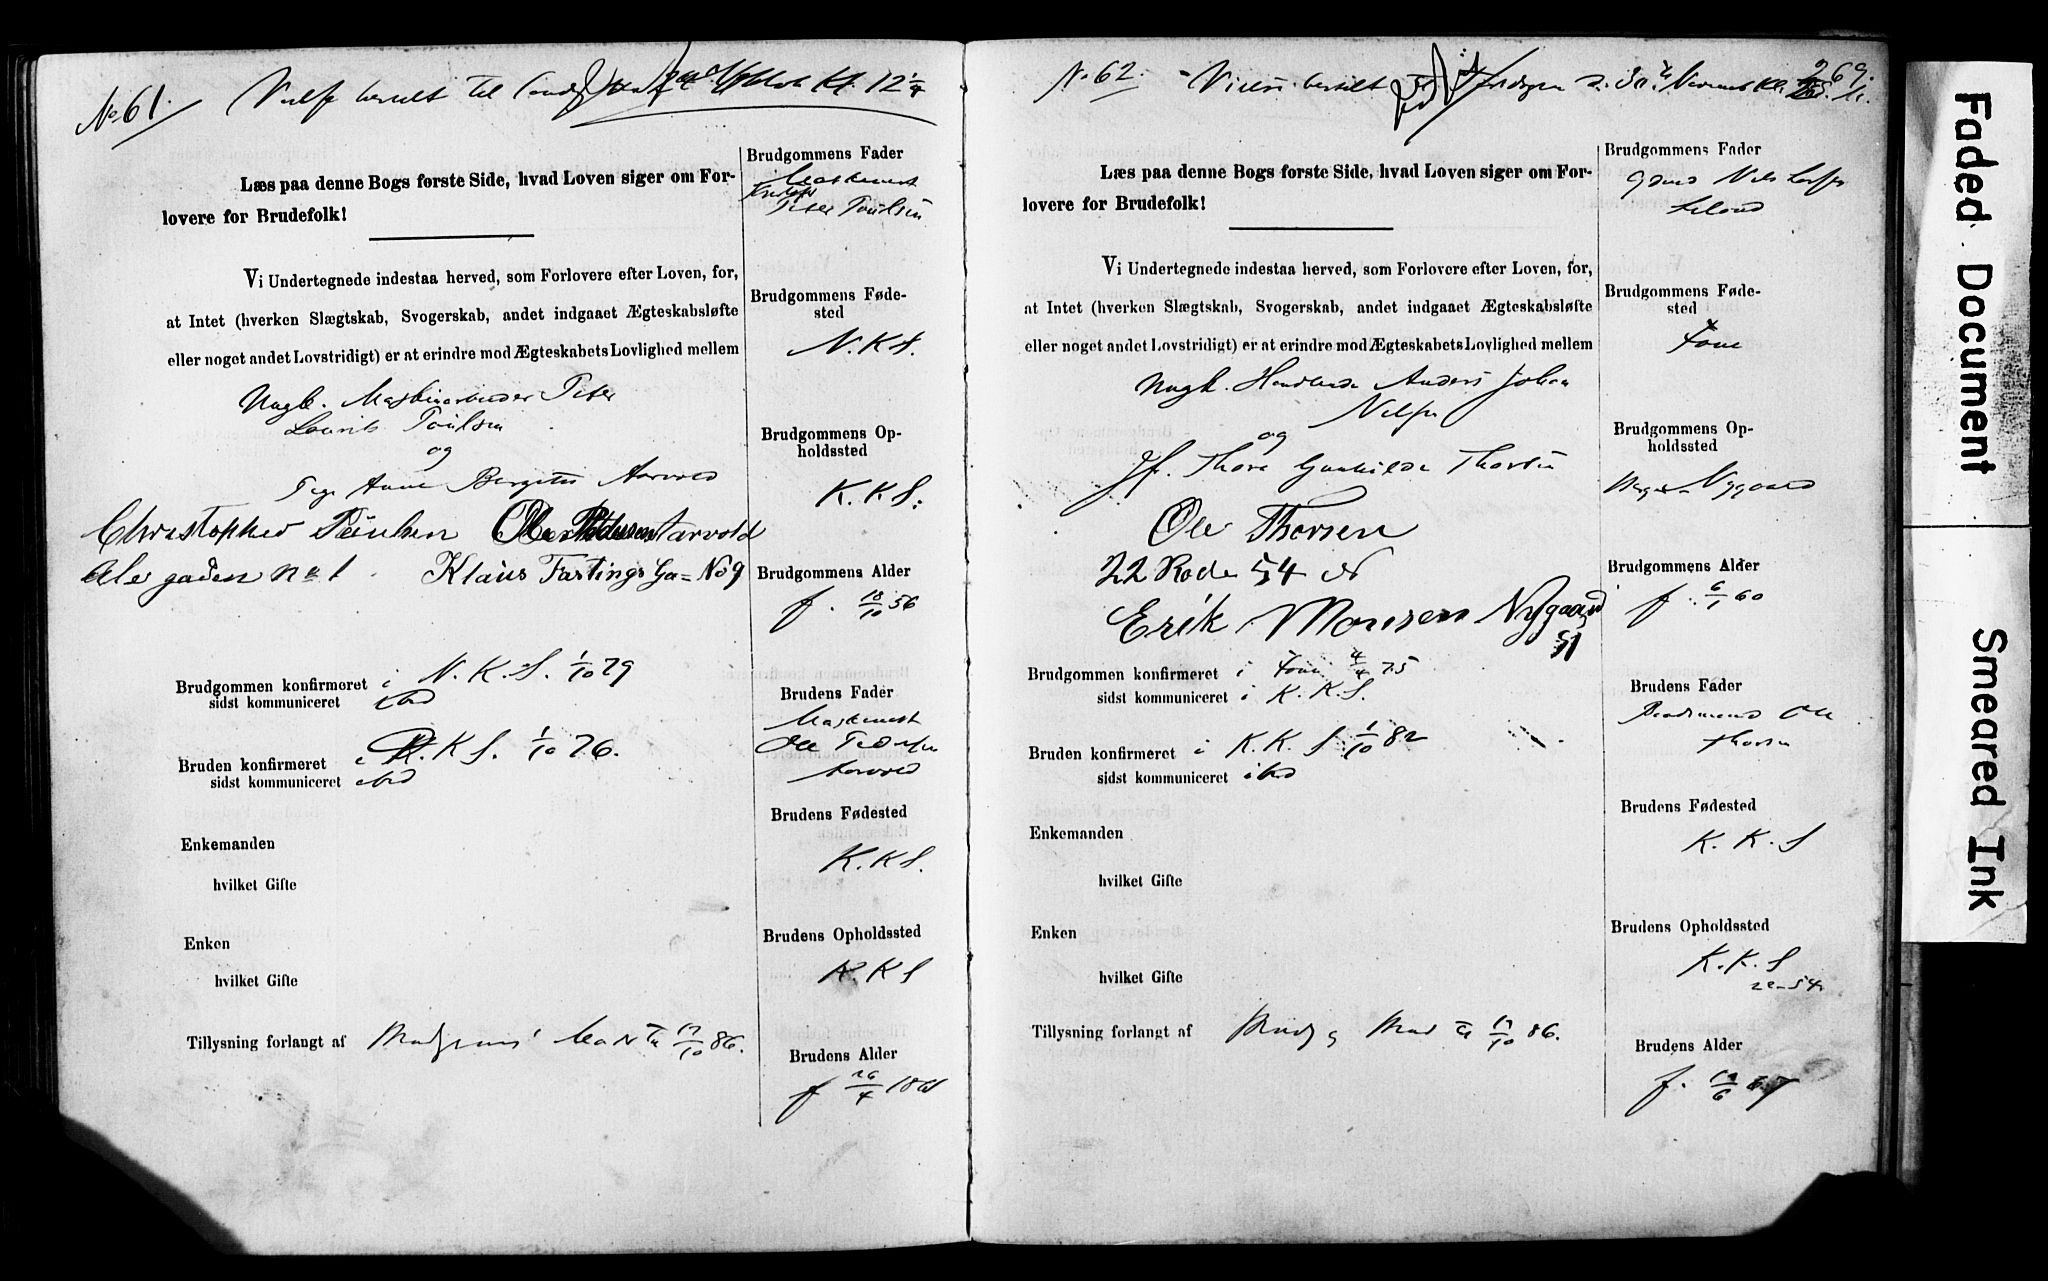 No 61.
Kl. 12 1/4
Læs paa denne Bogs første Side, hvad Loven siger om For-
lovere for Brudefolk!
Vi Undertegnede indestaa herved, som Forlovere efter Loven, for,
at Intet (hverken Slægtskab, Svogerskab, andet indgaaet Ægteskabsløfte
eller noget andet Lovstridigt) er at erindre mod Ægteskabets Lovlighed mellem
Ungk. Maskinarbeider Peter
Lourits Poulsen
og
Pige Anne Bergitte Aarvold
Christopher Poulsen Ole Pedersen Aarvold
gaden No 1 Klaus Fastings Ga= No 9
Brudgommen konfirmeret i N. K. S. 1/10 79
sidst kommuniceret ibid
Bruden konfirmeret i K. S. 1/10 76.
sidst kommuniceret ibid
Enkemanden
hvilket Gifte
Enken
hvilket Gifte
Tillysning forlangt af 17/10 86.
Brudgommens Fader
Peter Poulsen
Brudgommens Føde-
sted
N. K. S.
Brudgommens Op-
holdssted
K. K. S.
Brudgommens Alder
f. 18/10 56
Brudens Fader
Ole Pedersen
Aarvold
Brudens Fødested
K. K. S.
Brudens Opholdssted
K. K. S
Brudens Alder
f 26/4 1861
No 62.
269.
Læs paa denne Bogs første Side, hvad Loven siger om For-
lovere for Brudefolk!
Vi Undertegnede indestaa herved, som Forlovere efter Loven, for,
at Intet (hverken Slægtskab, Svogerskab, andet indgaaet Ægteskabsløfte
eller noget andet Lovstridigt) er at erindre mod Ægteskabets Lovlighed mellem
Ungk. Anders Johan
Nilsen
og
Jf. Thora Gunhilda Thorsen
Ole Thorsen
22 Rode 54 N
Erik Monsen Nygaard
Brudgommen konfirmeret i 4/4 75
sidst kommuniceret i K. K. S.
Bruden konfirmeret i K. K. S 1/10 82
sidst kommuniceret ibid
Enkemanden
hvilket Gifte
Enken
hvilket Gifte
Tillysning forlangt af 17/10 86.
Brudgommens Fader
Nils
Brudgommens Føde-
sted
Brudgommens Op-
holdssted
Nygaard
Brudgommens Alder
f. 6/1 60
Brudens Fader
Ole
Thorsen
Brudens Fødested
K. K. S
Brudens Opholdssted
K. K. S
22-54
Brudens Alder
f. 19/6 67
Faded Document
Smeared Ink